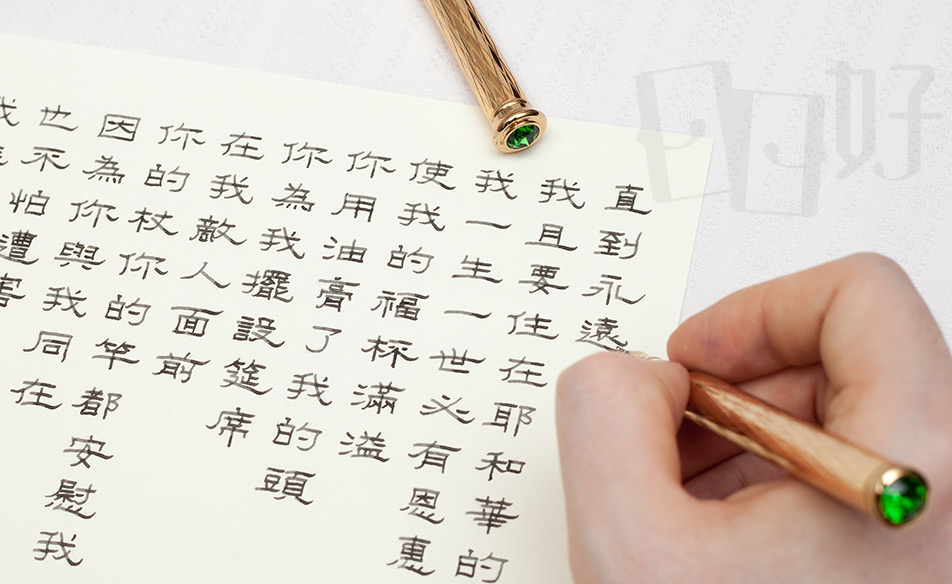 也不怕遭害
因為你與我同在
你的杖你的竿都安慰我
在我敵人面前
你為我擺設筵席
你用油膏了我的頭
使我的福杯滿溢
我一生一世必有恩惠
我且要住在耶和華的
直到永遠
好